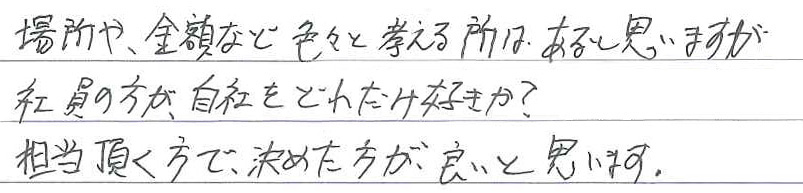 場所や、金額など色々と考える所は、あると思いますが
社員の方が、自社をどれだけ好きか？
担当頂く方で、決めた方が、良いと思います。